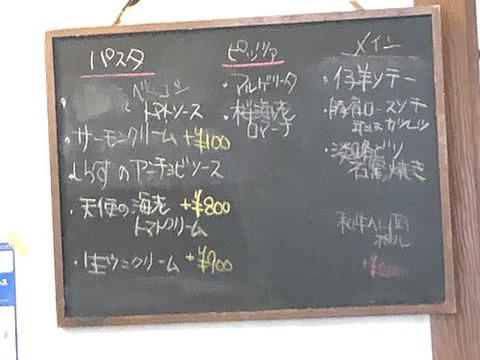 パスタ
ベーコン
トマトソース
・サーモンクリーム +¥100
しらすのアンチョビソース
・天使の海老 +¥800
トマトクリーム
・生ウニクリーム +¥900
ピッツァ
・マルゲリータ
・桜海老
ロマーナ
メイン
・仔羊ソテー
・豚肩ロースソテー
またはカツレツ
・淡路ビーフ
石窯焼き
和牛